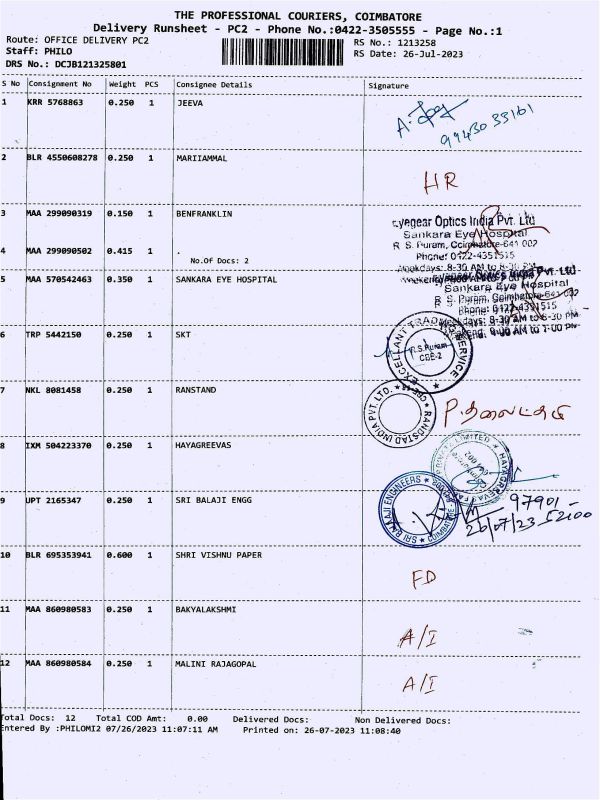 THE PROFESSIONAL COURIERS, COIMBATORE
Delivery Runsheet - PC2 - Phone No.:0422-3505555 - Page No.:1
Route: OFFICE DELIVERY PC2
Staff: PHILO
DRS No.: DCJB121325801
RS No.: 1213258
RS Date: 26-Jul-2023
S No Consignment No Weight PCS Consignee Details Signature
1 KRR 5768863 0.250 1 JEEVA
99430 33161
2 BLR 4550608278 0.250 1 MARIIAMMAL
HR
3 MAA 299090319 0.150 1 BENFRANKLIN
Eyegear Optics India Pvt. Ltd
Sankara Eye Hospital
R. S. Puram, Coimbatore-641 002
Phone: 0422-4351515
Weekdays: 8-30 AM to 8-30 PM
4 MAA 299090502 0.415 1 .
No.Of Docs: 2
5 MAA 570542463 0.350 1 SANKARA EYE HOSPITAL
Eyegear Optics India Pvt. Ltd
Sankara Eye Hospital
R. S. Puram, Coimbatore-641 002
Phone: 0422-4351515
Weekdays: 8-30 AM to 8-30 PM
Weekend: 9-00 AM to 7-00 PM
6 TRP 5442150 0.250 1 SKT
EXCELLANT TRADING SERVICE
R.S.Puram
CBE-2
7 NKL 8081458 0.250 1 RANSTAND
RANDSTAD INDIA PVT. LTD. CBE-18
8 IXM 504223370 0.250 1 HAYAGREEVAS
9 UPT 2165347 0.250 1 SRI BALAJI ENGG
SRI BALAJI ENGINEERS
97901-
52100
26/07/23
10 BLR 695353941 0.600 1 SHRI VISHNU PAPER
FD
11 MAA 860980583 0.250 1 BAKYALAKSHMI
A/I
12 MAA 860980584 0.250 1 MALINI RAJAGOPAL
A/I
Total Docs: 12 Total COD Amt: 0.00 Delivered Docs: Non Delivered Docs:
Entered By :PHILOMI2 07/26/2023 11:07:11 AM Printed on: 26-07-2023 11:08:40